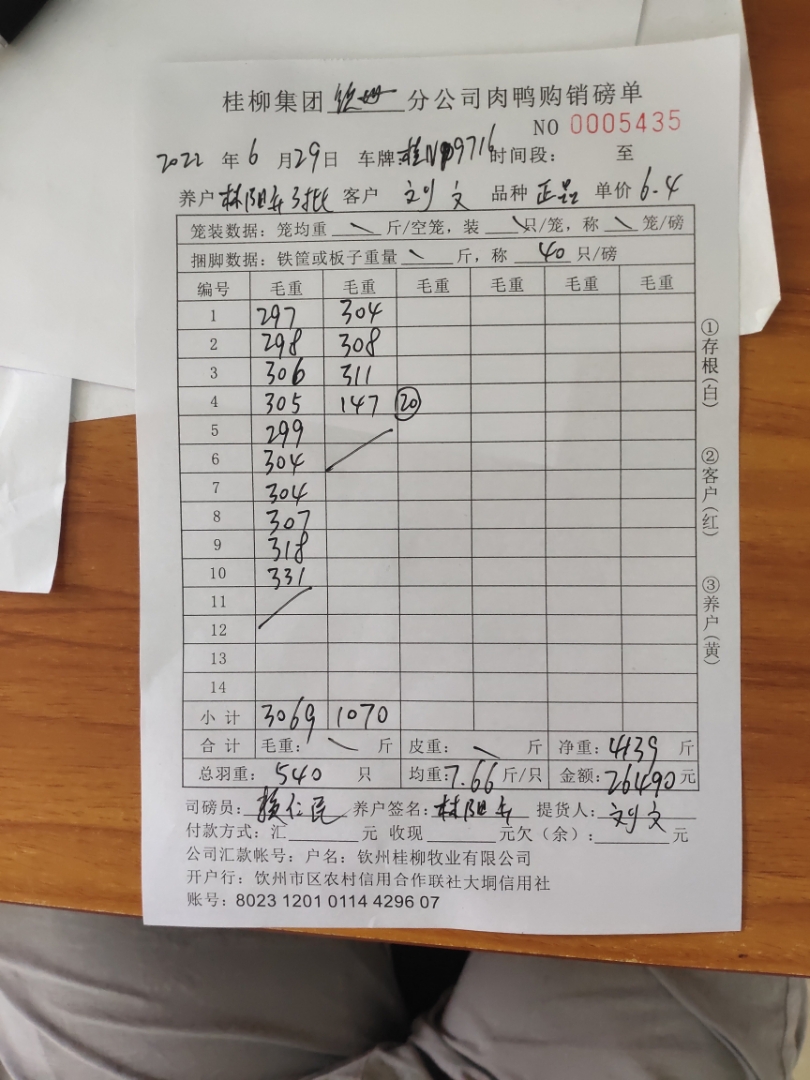 桂柳集团 钦州 分公司肉鸭购销磅单
NO 0005435
2022 年 6 月 29 日 车牌: 桂N 09716 时间段: 至
养户 林阳 3批 客户 刘文 品种 正品 单价 6.4
笼装数据: 笼均重 \ 斤/空笼, 装 \ 只/笼, 称 \ 笼/磅
捆脚数据: 铁筐或板子重量 \ 斤, 称 40 只/磅
编号 毛重 毛重 毛重 毛重 毛重 毛重
1 297 304
2 298 308
3 306 311
4 305 147 20
5 299
6 304
7 304
8 307
9 318
10 331
11
12
13
14
小计 3069 1070
合计 毛重: \ 斤 皮重: \ 斤 净重: 4139 斤
总羽重: 540 只 均重: 7.66 斤/只 金额: 26490 元
司磅员: 仁民 养户签名: 林阳 提货人: 刘文
付款方式: 汇 元 收现 元欠（余）: 元
公司汇款帐号: 户名: 钦州桂柳牧业有限公司
开户行: 钦州市区农村信用合作联社大垌信用社
账号: 8023 1201 0114 4296 07
①存根（白）
②客户（红）
③养户（黄）